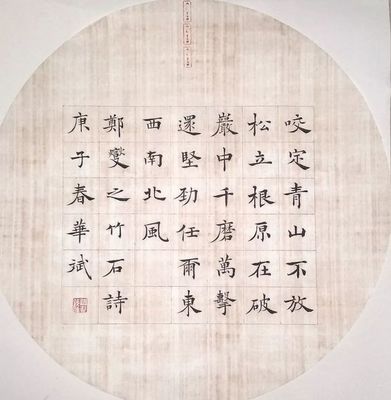 咬定青山不放
松立根原在破
巖中千磨萬擊
還堅勁任爾東
西南北風
鄭燮之竹石詩
庚子春華斌